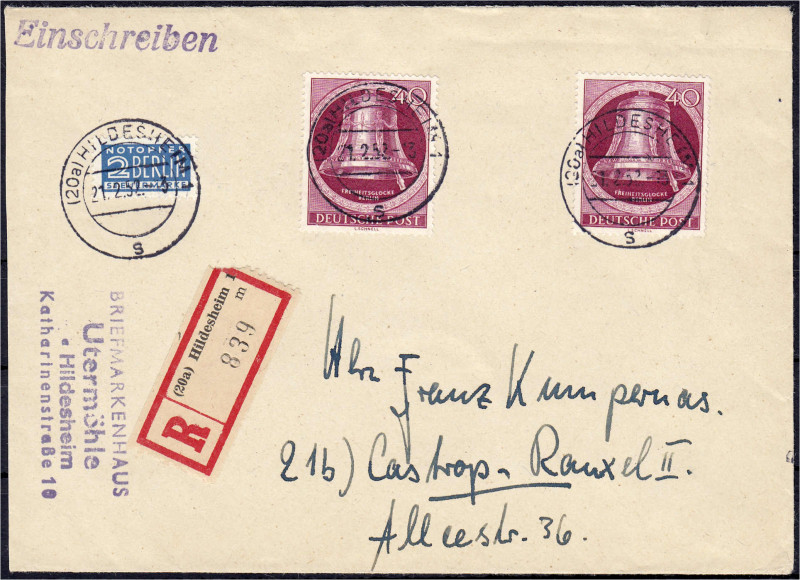 Einschreiben
NOTOPFER
2 BERLIN
STEUERMARKE
(20a) HILDESHEIM 1
21.2.52.-
s
40
FREIHEITSGLOCKE
BERLIN
DEUTSCHE POST
L.SCHNELL
(20a) HILDESHEIM 1
21.2.52.-
s
40
FREIHEITSGLOCKE
BERLIN
DEUTSCHE POST
L.SCHNELL
(20a) HILDESHEIM 1
s
BRIEFMARKENHAUS
Utermöhle
Hildesheim
Katharinenstraße 10
R
(20a) Hildesheim 1
m
839
Franz Kumpernas.
21b) Castrop-Rauxel II.
Alleestr. 36.